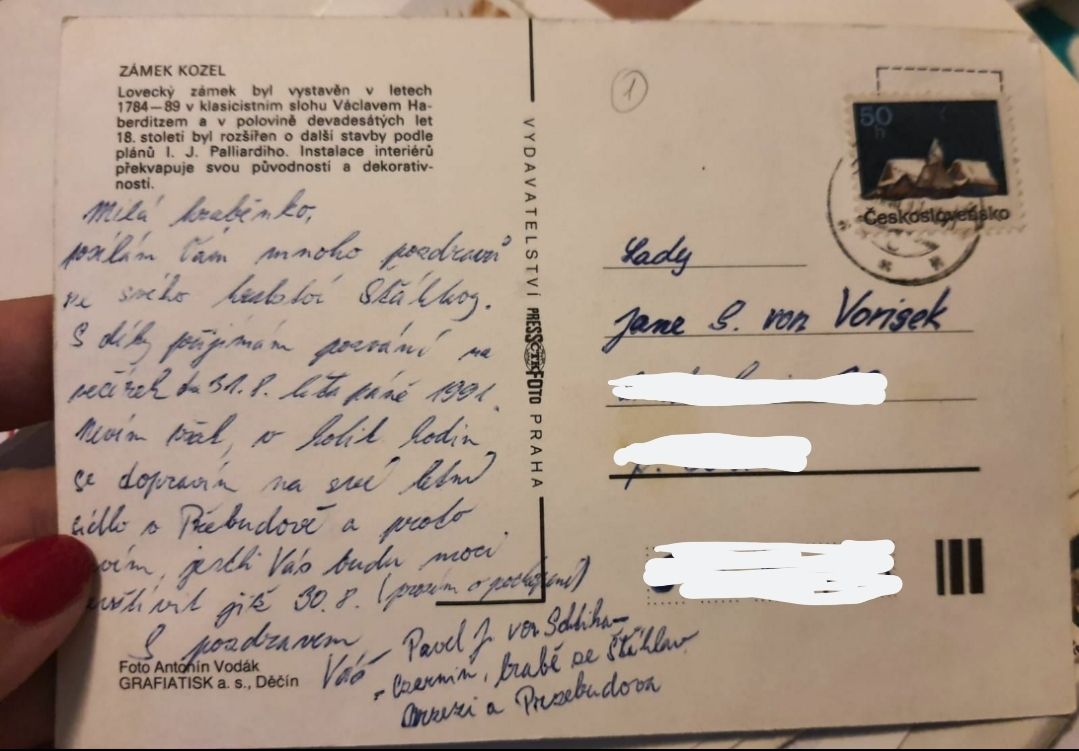 ZÁMEK KOZEL
Lovecký zámek byl vystavěn v letech
1784—89 v klasicistním slohu Václavem Ha-
berditzem a v polovině devadesátých let
18. století byl rozšířen o další stavby podle
plánů I. J. Palliardiho. Instalace interiérů
překvapuje svou původností a dekorativ-
ností.
Milá hraběnko,
posílám Vám mnoho pozdravů
ze svého hradství
S díky přijímám pozvání na
večírek 31.8. léta páně 1991.
Nevím však, v kolik hodin
se dopravím na své letní
sídlo v Přebudově a proto
nevím, jestli Vás budu moci
navštívit již 30.8. (prosím o pochopení)
S pozdravem
Váš Pavel J. von Schlika-
Czernin, hrabě ze Šťáhlav
a Przebudova
Foto Antonín Vodák
GRAFIATISK a. s., Děčín
VYDAVATELSTVÍ PRESSFOTO PRAHA
ČTK
1
50
h
Československo
Lady
Jane S. von Vorisek